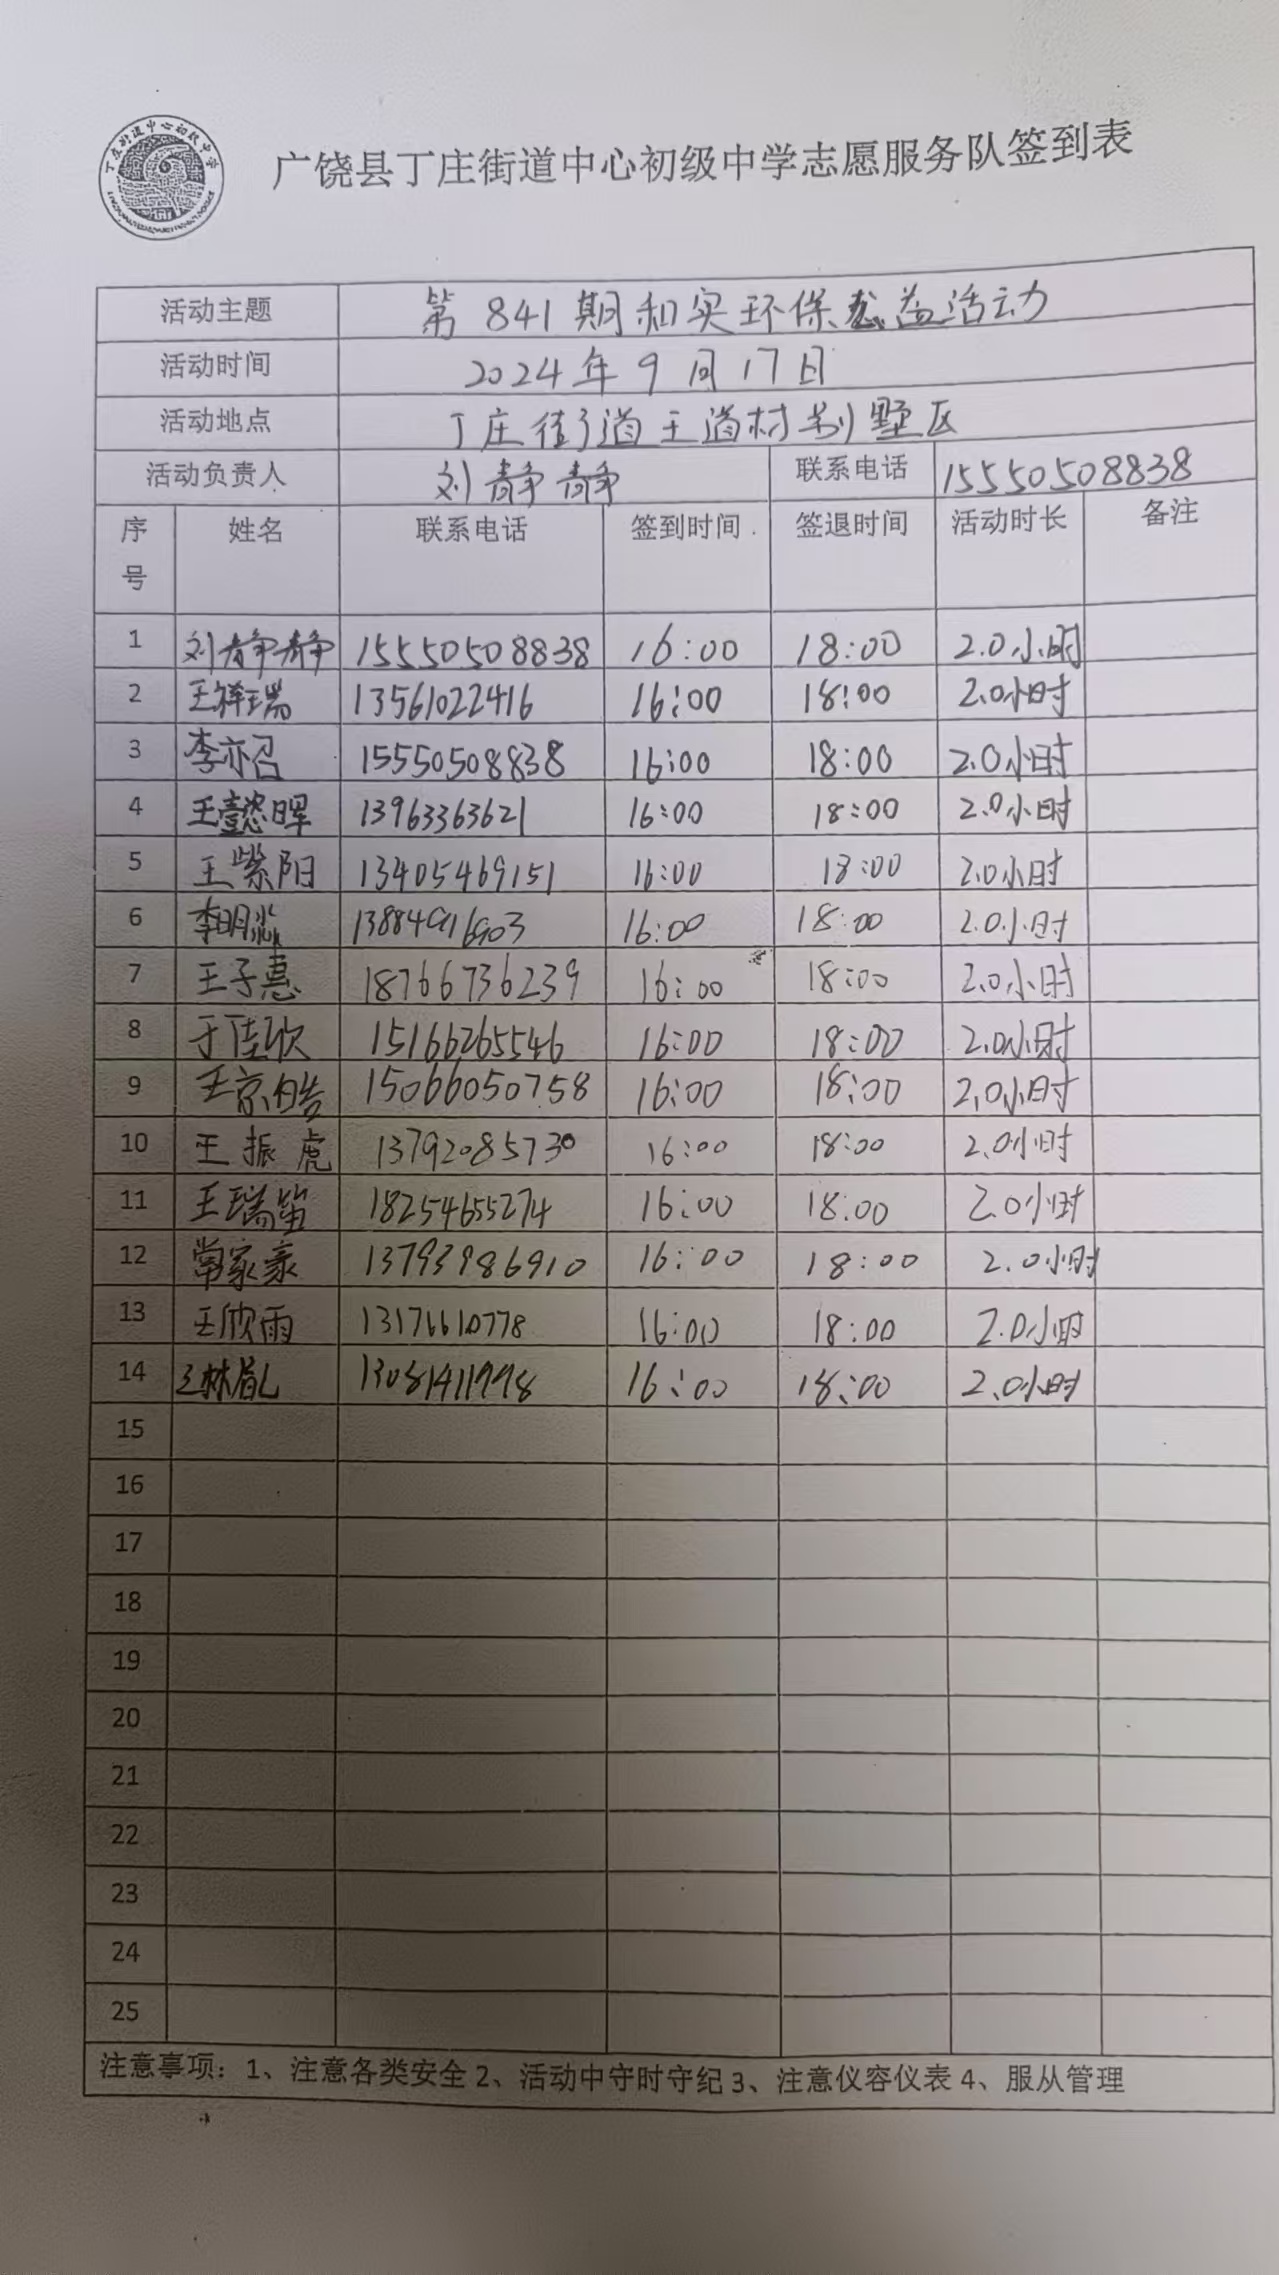 丁庄街道中心初级中学
广饶县丁庄街道中心初级中学志愿服务队签到表
活动主题 第841期和实环保公益活动
活动时间 2024年9月17日
活动地点 丁庄街道王道村别墅区
活动负责人 刘静静 联系电话 15550508838
序号 姓名 联系电话 签到时间 签退时间 活动时长 备注
1 刘静静 15550508838 16:00 18:00 2.0小时
2 王祥瑞 13561022416 16:00 18:00 2.0小时
3 李亦召 15550508838 16:00 18:00 2.0小时
4 王懿晖 13963363621 16:00 18:00 2.0小时
5 王紫阳 13405469151 16:00 18:00 2.0小时
6 李明淼 13884916903 16:00 18:00 2.0小时
7 王子惠 18766736239 16:00 18:00 2.0小时
8 于佳欣 15166265546 16:00 18:00 2.0小时
9 王京皓 15066050758 16:00 18:00 2.0小时
10 王振虎 13792085730 16:00 18:00 2.0小时
11 王瑞笛 18254655274 16:00 18:00 2.0小时
12 常家豪 13793986910 16:00 18:00 2.0小时
13 王欣雨 13176610778 16:00 18:00 2.0小时
14 16:00 18:00 2.0小时
15
16
17
18
19
20
21
22
23
24
25
注意事项：1、注意各类安全 2、活动中守时守纪 3、注意仪容仪表 4、服从管理